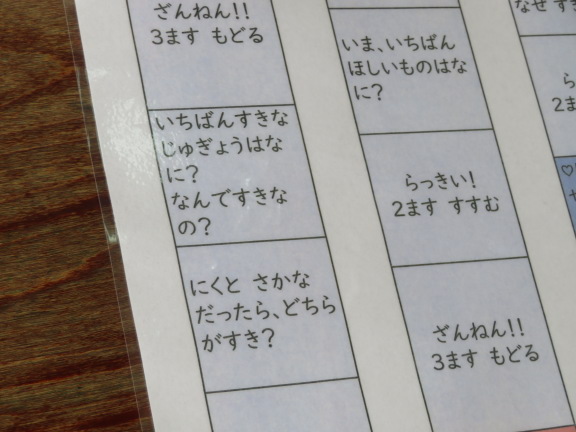 ざんねん!!
3ます もどる
いちばんすきな
じゅぎょうはな
に?
なんですきな
の?
にくと さかな
だったら、どちら
がすき?
いま、いちばん
ほしいものはな
に?
らっきい!
2ます すすむ
ざんねん!!
3ます もどる
なぜ
ら
2ま
♡